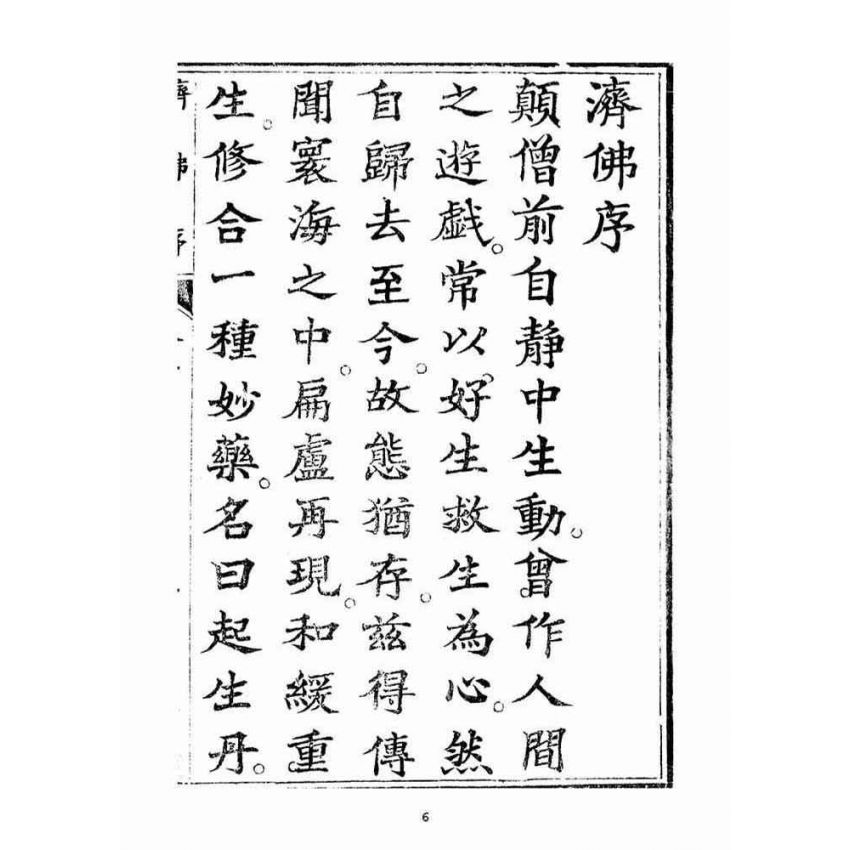 濟佛序
顛僧前自靜中生動。曾作人間
之遊戯。常以好生救生為心。然
自歸去至今。故態猶存。茲得傳
聞寰海之中。扁盧再現。和緩重
生。修合一種妙藥。名曰起生丹。
濟佛序
6